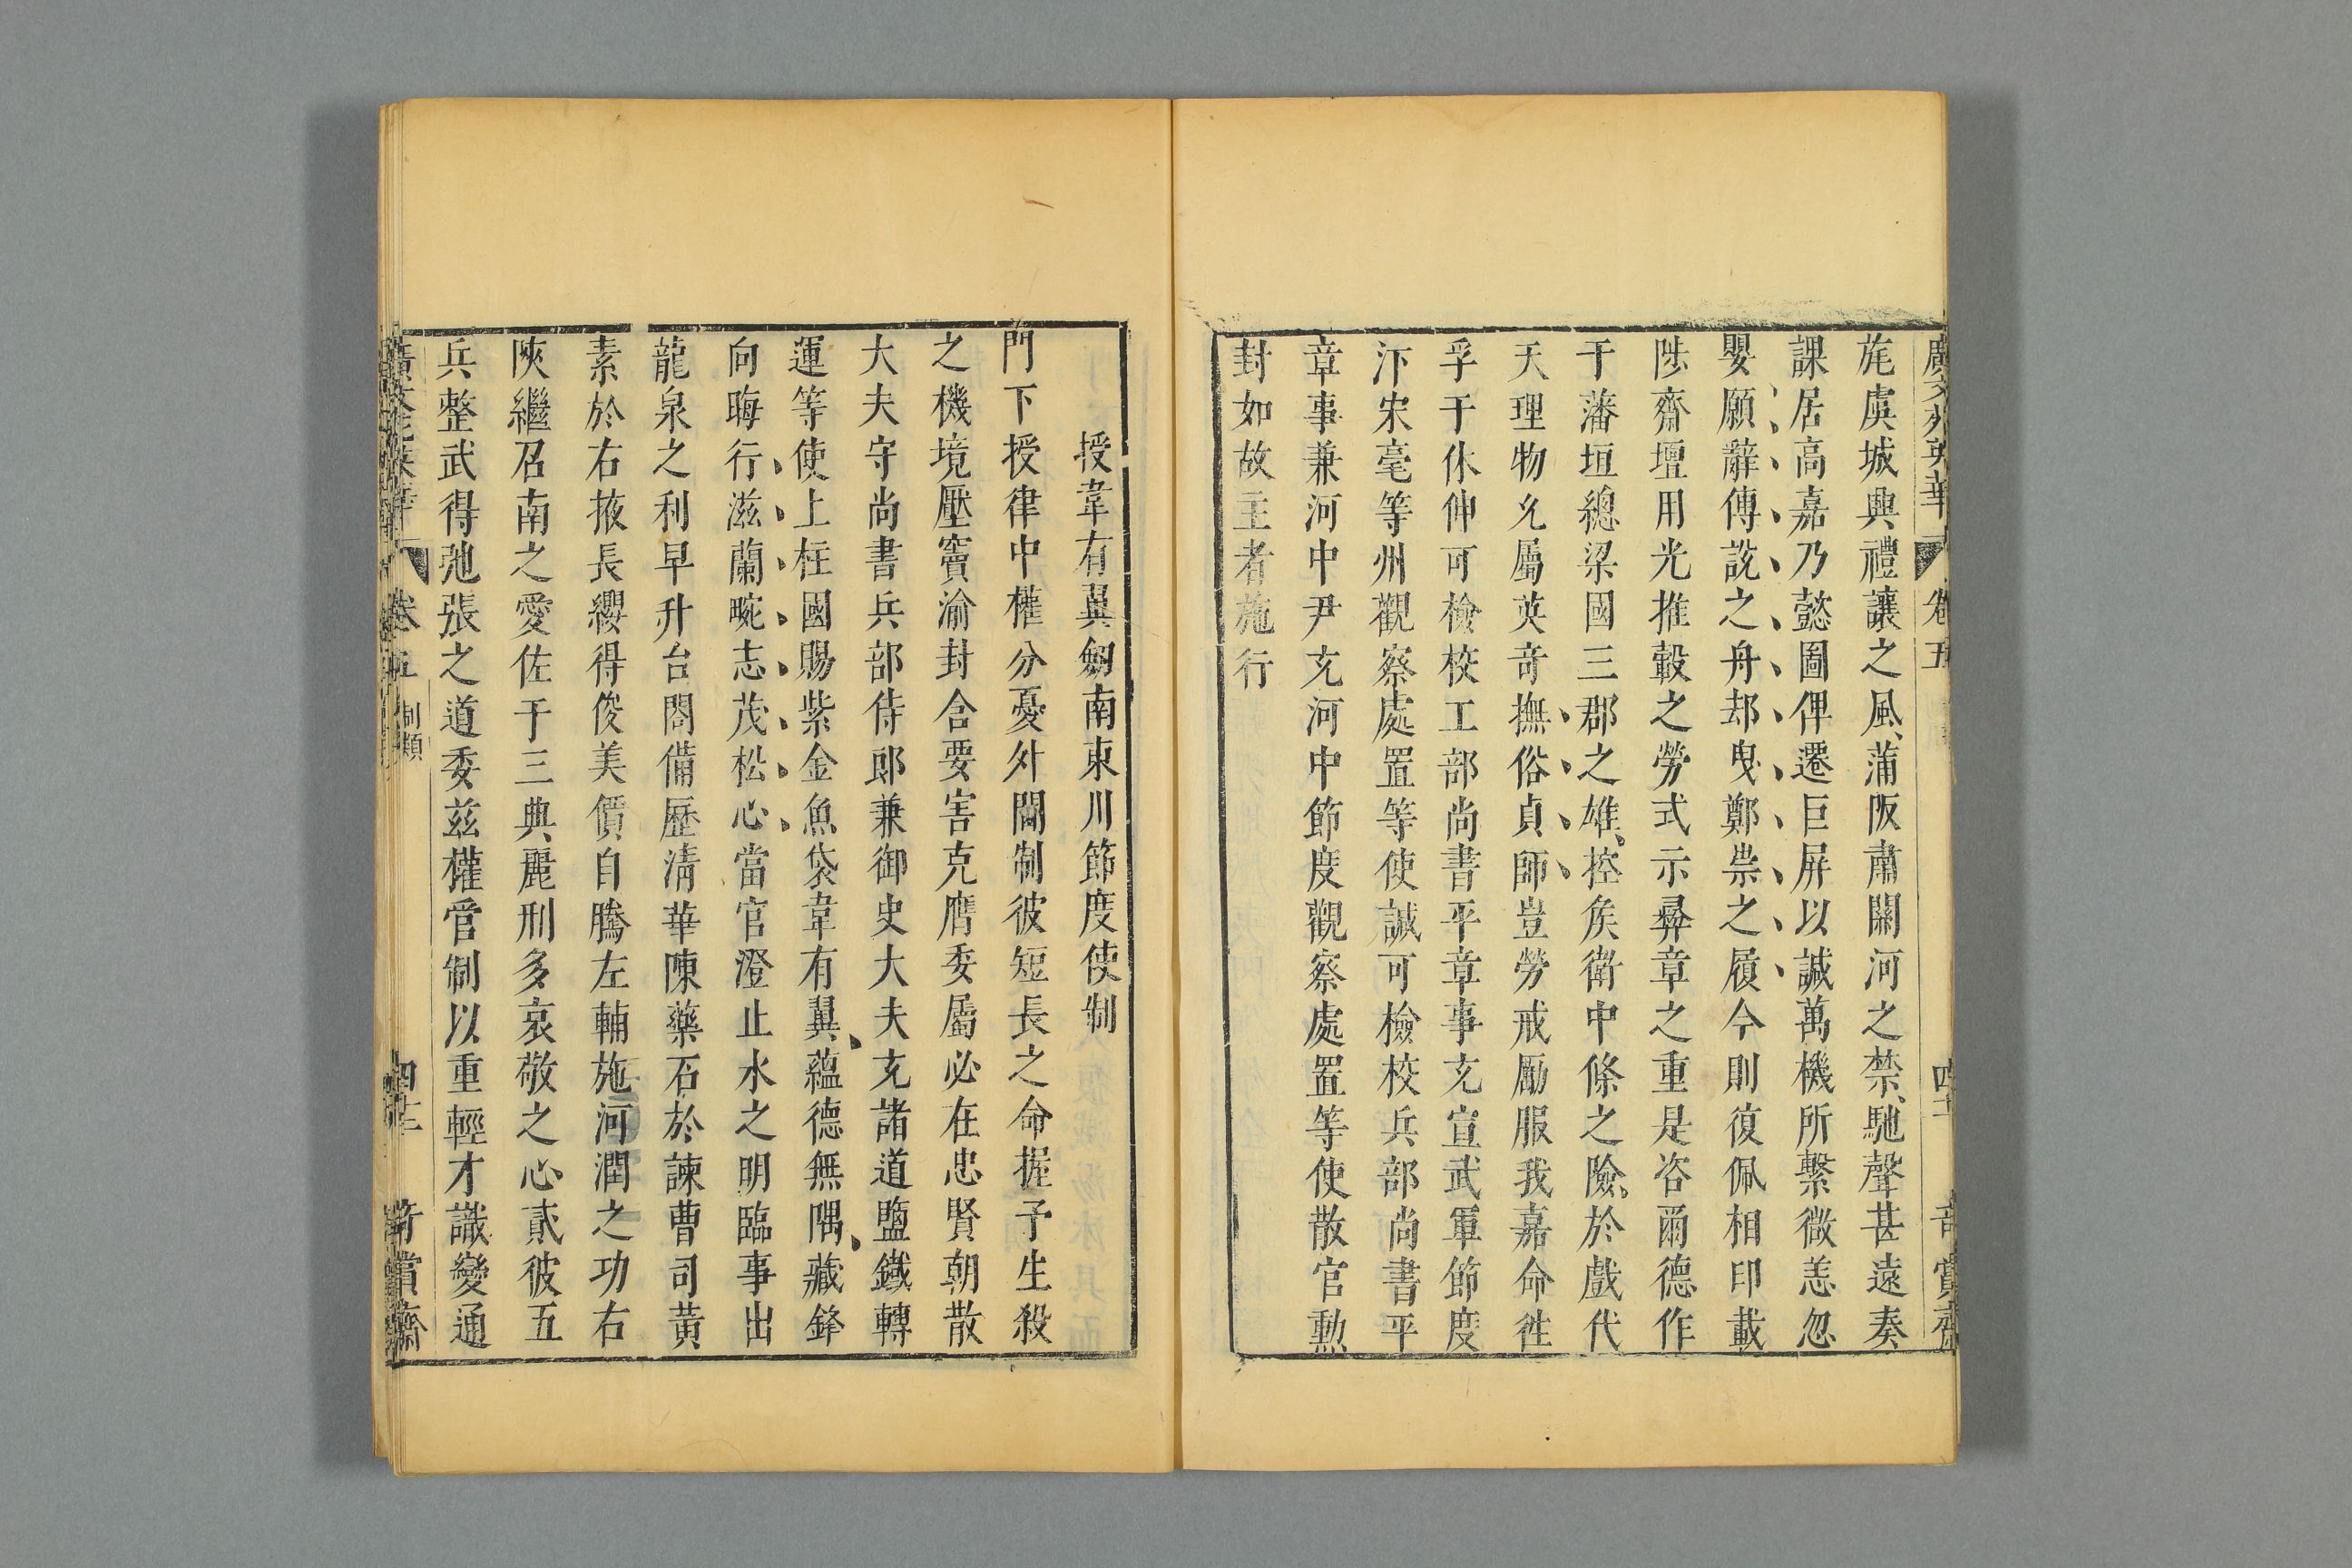 廣文苑英華 卷五 四十 奇賞齋
旄虞城興禮讓之風蒲阪肅關河之禁馳聲甚遠奏
課居高嘉乃懿圖俾遷巨屏以諴萬機所繫微恙忽
嬰願辭傳說之舟却曳鄭崇之履今則復佩相印載
陟齋壇用光推轂之勞式示彝章之重是咨爾德作
于藩垣總梁國三郡之雄控矦衛中條之險於戲代
天理物允屬英奇撫俗貞師豈勞戒勵服我嘉命徃
孚于休伸可檢校工部尚書平章事充宣武軍節度
汴宋亳等州觀察處置等使諴可檢校兵部尚書平
章事兼河中尹充河中節度觀察處置等使散官勲
封如故主者施行
授韋有翼劒南東川節度使制
門下授律中權分憂外閫制彼短長之命握予生殺
之機境壓竇渝封含要害克膺委屬必在忠賢朝散
大夫守尚書兵部侍郎兼御史大夫充諸道鹽鐵轉
運等使上柱國賜紫金魚袋韋有翼蘊德無隅藏鋒
向晦行滋蘭畹志茂松心當官澄止水之明臨事出
龍泉之利早升台閣備歷清華陳藥石於諫曹司黃
素於右掖長纓得俊美價自騰左輔施河潤之功右
陝繼召南之愛佐于三典麗刑多哀敬之心貳彼五
兵整武得弛張之道委兹權管制以重輕才識變通
廣文苑英華 卷五 制類 奇賞齋